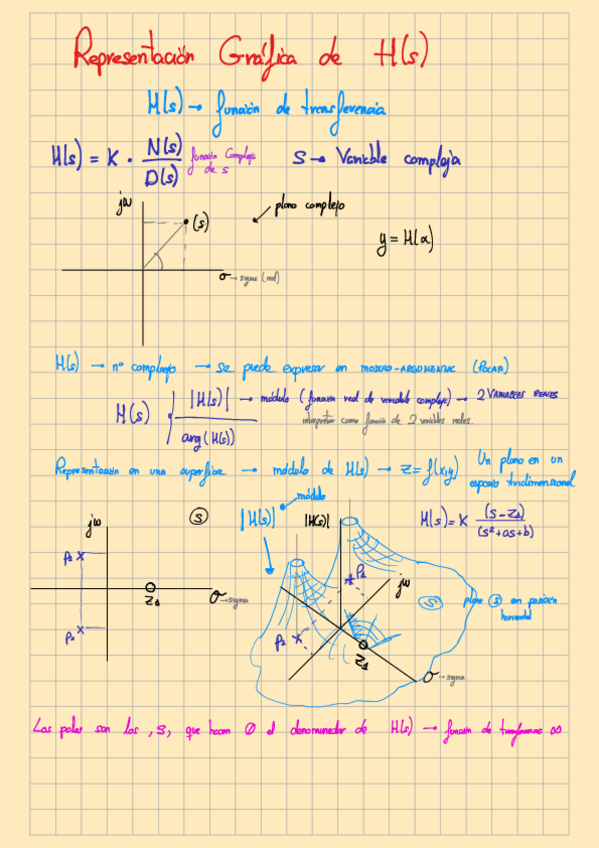 Representación Gráfica de H(s)
H(s) → función de transferencia
H(s) = K · N(s) / D(s) función compleja de s
S → Variable compleja
jω
(s)
plano complejo
y = H(α)
σ → sigma (real)
H(s) → nº complejo → se puede expresar en MODULO-ARGUMENTAL (POLAR)
H(s) { |H(s)| → módulo (función real de variable compleja) → 2 VARIABLES REALES
interpretar como función de 2 variables reales.
arg(H(s))
Representación en una superficie → módulo de H(s) → z = f(x,y) Un plano en un
espacio tridimensional
módulo
jω
S
|H(s)|
|H(s)|
H(s) = K (s-z1) / (s²+as+b)
P1 X
z1
σ → sigma
P2 X
P1
jω
S
plano (s) en posición
horizontal
P2 X
z1
σ → sigma
Los polos son las, s, que hacen 0 el denominador de H(s) → función de transferencia ∞